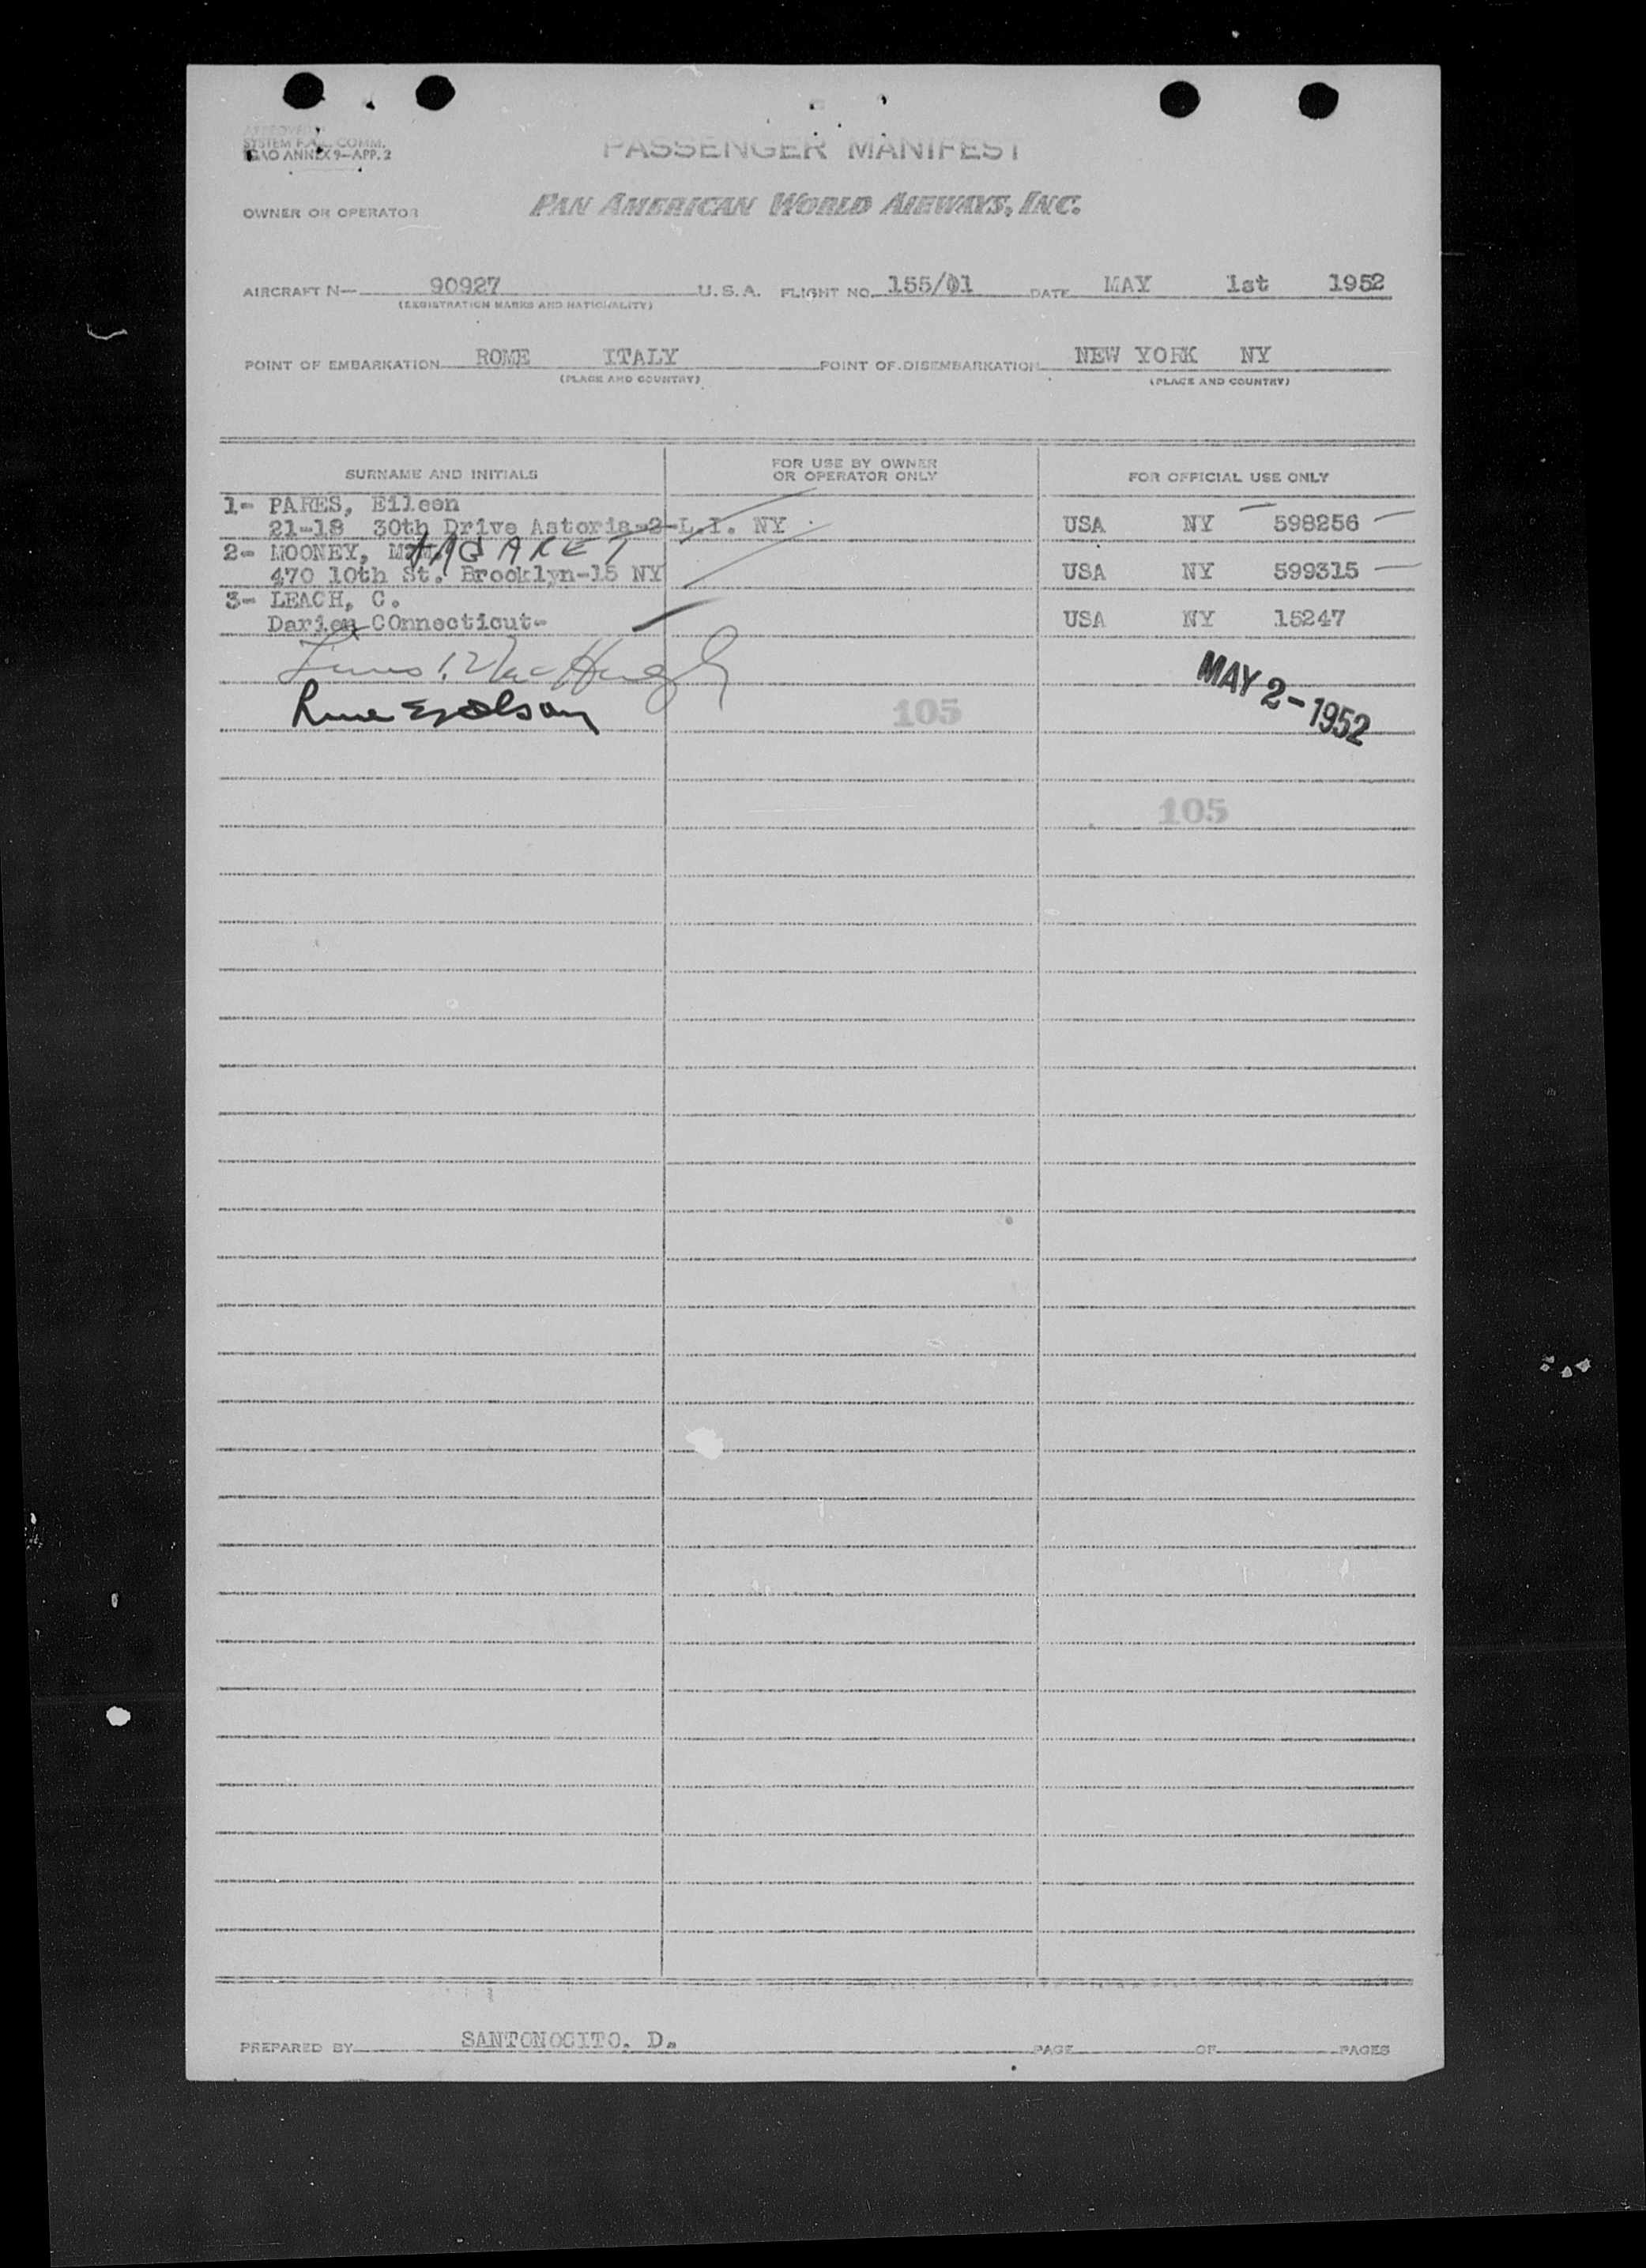 APPROVED BY
SYSTEM F.A.L. COMM.
ICAO ANNEX 9—APP. 2
PASSENGER MANIFEST
OWNER OR OPERATOR PAN AMERICAN WORLD AIRWAYS, INC.
AIRCRAFT N— 90927 U.S.A. FLIGHT NO. 155/01 DATE MAY 1st 1952
(REGISTRATION MARKS AND NATIONALITY)
POINT OF EMBARKATION ROME ITALY POINT OF DISEMBARKATION NEW YORK NY
(PLACE AND COUNTRY) (PLACE AND COUNTRY)
SURNAME AND INITIALS FOR USE BY OWNER OR OPERATOR ONLY FOR OFFICIAL USE ONLY
1- PARES, Eileen
21-18 30th Drive Astoria-2-L.I. NY USA NY 598256
2- MOONEY, MARGARET
470 10th St. Brooklyn-15 NY USA NY 599315
3- LEACH, C.
Darien COnnecticut- USA NY 15247
MAY 2-1952
105
105
PREPARED BY SANTONOCITO. D. PAGE OF PAGES